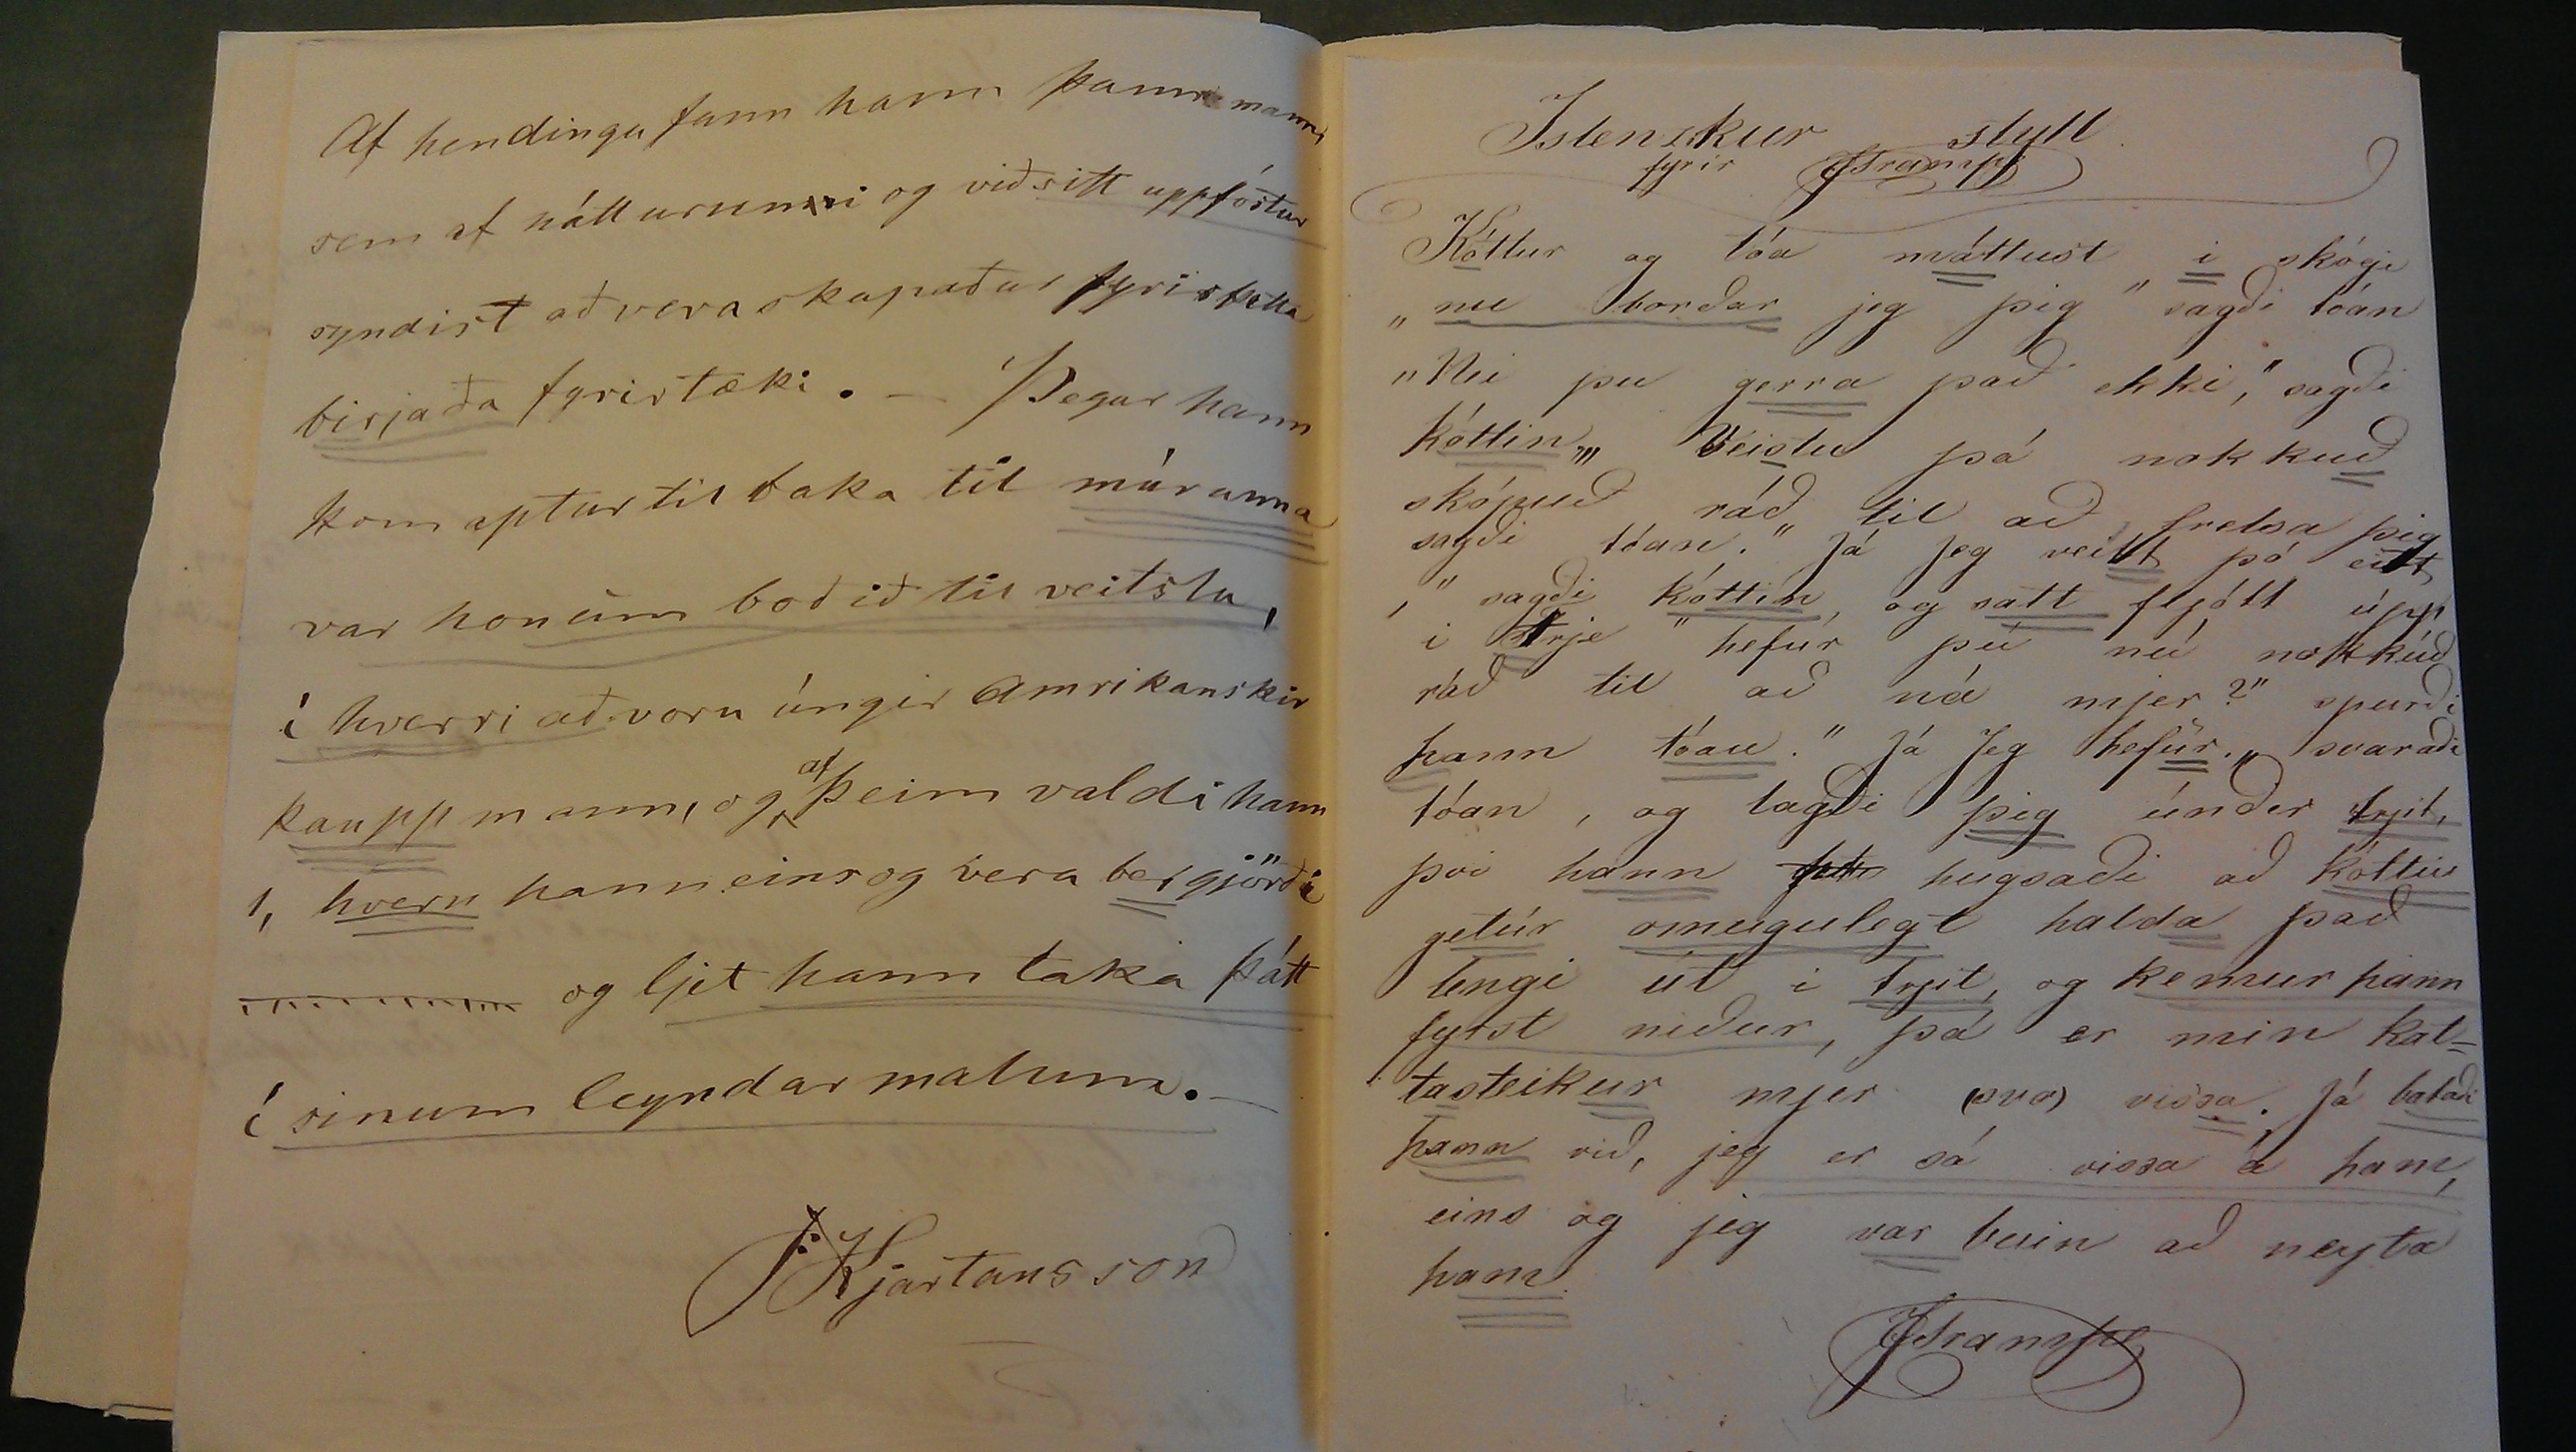 Af hendingu fann hann þann mann,
sem af nátturunni og við sitt uppfóstur
syndist að vera skapaður fyrir þetta
birjaða fyrirtæki. — Þegar hann
kom aptur til baka til múranna
var honúm boðið til veitslu,
í hverri að voru úngir Amrikanskir
kauppmann, og af þeim valdi hann
1, hvern hann eins og vera ber gjörði
og ljet hann taka þátt
í sinum leyndarmalum. —
Kjartansson
Islenskur styll
fyrir JTrampe
Köttur og tóa máttust i skógi
„nu borðar jeg þig" sagði tóan
„Nei þu gerra það ekki," sagði
köttin„ Veistu þá nokkuð
sköpuð ráð til að frelsa þig
sagði tóan." Já jeg veitt þó eitt
," sagði köttin, og satt fljótt úpp
i trje " hefúr þú nú nokkúð
ráð til að ná mjer?" spurði
hann tóan." Já Jeg hefúr." svaraði
tóan, og lagði þig únðer trjit,
þvi hann hugsaði að köttin
getúr omugulegt halda það
lengi út i trjit, og kemur hann
fyrst niður, þá er min kat=
tasteikur mjer (svo) vissa. Já bataði
hann við, jeg er sá vissa á ham,
eins og jeg var buin að neyta
ham.
JTrampe